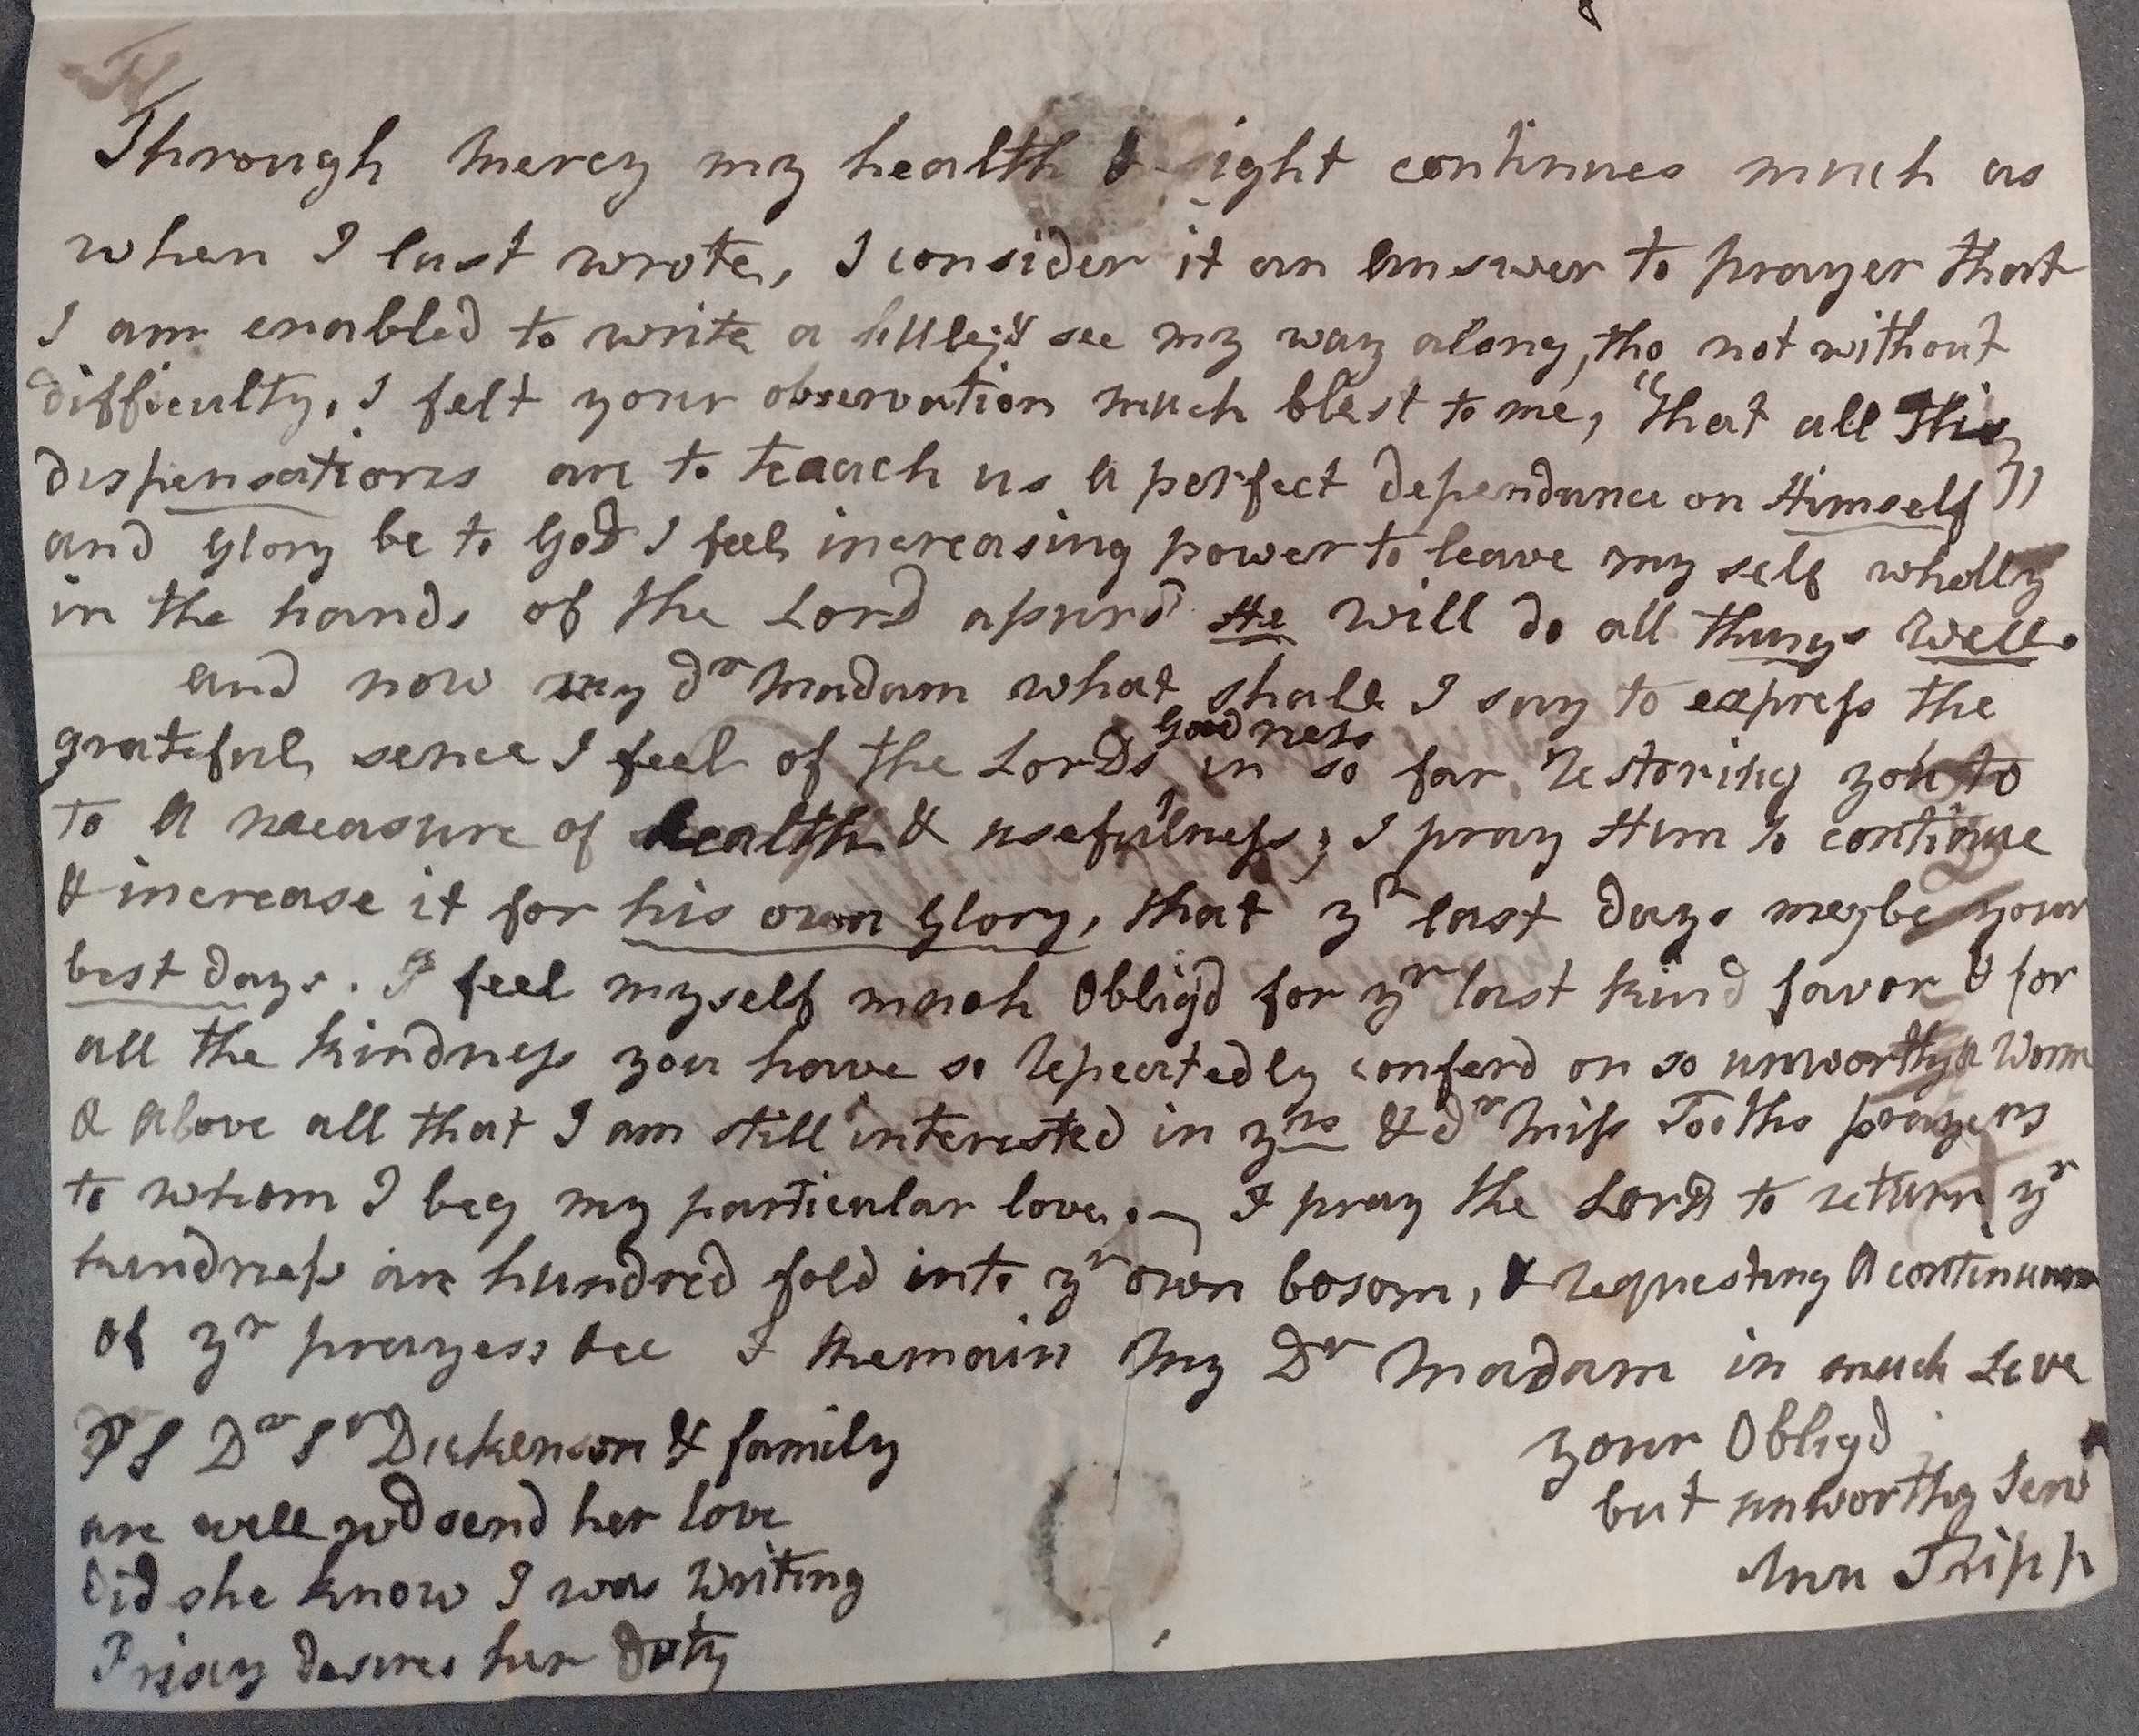 Through Mercy my health & sight continues much as
when I last wrote, I consider it an answer to prayer that
I am enabled to write a little, & see my way along, tho not without
difficulty, I felt your observation much blest to me, "that all this
dispensations are to teach us a perfect dependance on Himself"
and Glory be to God I feel increasing power to leave my self wholly
in the hands of the Lord assurd He will do all things Well.
and now my dr Madam what shall I say to express the
grateful sence I feel of the Lords goodness in so far restoring you to
to a measure of health & usefulness; I pray Him to continue
& increase it for his own Glory, that yr last days maybe your
best days. I feel myself much Obligd for yr last kind favor & for
all the kindness you have so repeatedly conferd on so unworthy a Worm
& above all that I am still interested in yrs & dr Miss Tooths prayers
to whom I beg my particular love. — I pray the Lord to return yr
kindness an hundred fold into yr own bosom, & requesting a continuance
of yr prayers I remain My Dr Madam in much Love
PS Dr Sr Dickenson & family
are well wd send her love
did she know I was Writing
Prisey desires her Duty
your Obligd
but unworthy Servt
Ann Tripp